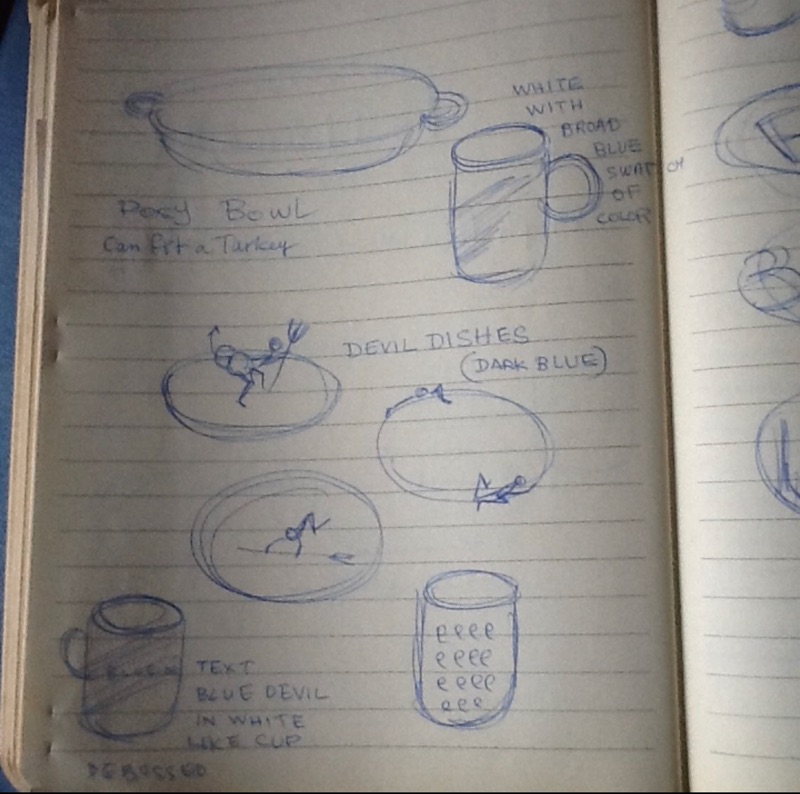 WHITE
WITH
BROAD
BLUE
SWATCH
OF
COLOR
POSY BOWL
Can fit a Turkey
DEVIL DISHES
(DARK BLUE)
eeee
eeee
eeee
eee
TEXT
BLUE DEVIL
IN WHITE
LIKE CUP
DEBOSSED